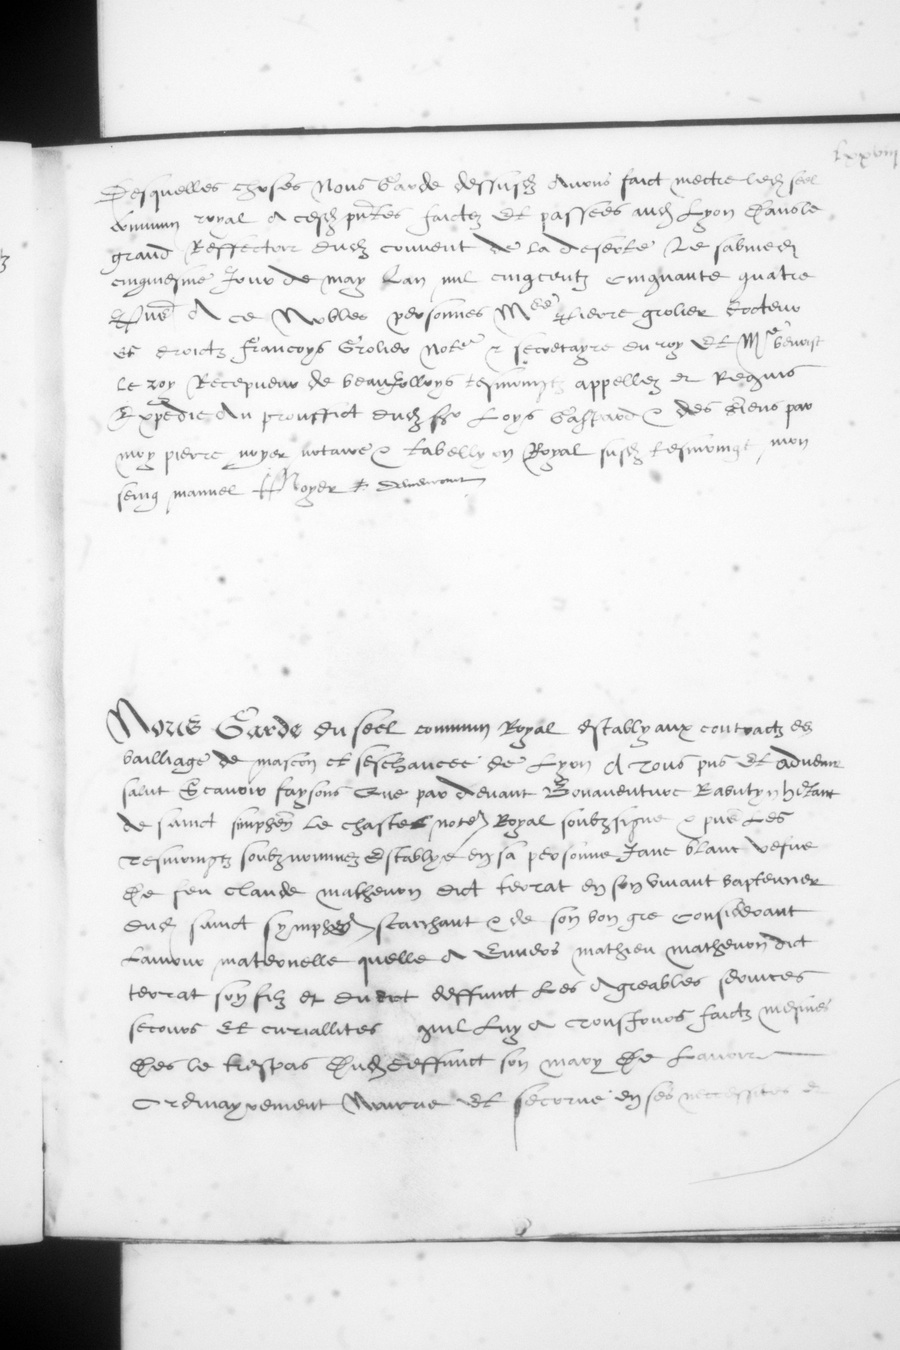 lxxviij
Desquelles choses Nous Garde dessusd avons faict mectre led seel
commun royal A cesd pntes faictz Et passees aud Lyon
grand Reffectoir dud couvent de la deserte Le sabmedi
cinquiesme Jour de may Lan mil cinqcentz cinquante quatre
A ce Nobles personnes pierre grolier docteur
es droictz Francoys Grolier Note & secretayre du roy Et Me benoist
le roy Recepveur de beaujolloys tesmoingtz appellez et Requis
Expedie Au prouffict dud Sr Loys Gastard & des siens par
moy pierre noyer notaire & tabellyon Royal susd tesmoingt mon
seing manuel P Noyer
NOUS Garde du seel commun Royal estably aux contractz es
bailliage de mascon et seschaucee de Lyon A tous pns Et advenir
salut Scavoir faysons Que par devant Bonaventure
de sainct simphen le chastel note Royal soubzsigne & pns Les
tesmoingtz soubznommez Establye en sa personne Jane blanc vefve
de feu claude mathevon dict terrat en son vivant
dud sainct symphen scaichant & de son bon gre Considerant
Lamour maternelle quelle A Envers mathieu mathevon dict
terrat son filz et dudict deffunct Les Agreables services
secours Et curiallites quil Luy A tousjours faictz mesmes
des le trespas dud deffunct son mary De Lavoir
Ordinayrement Nourrie Et secorue en ses necessites